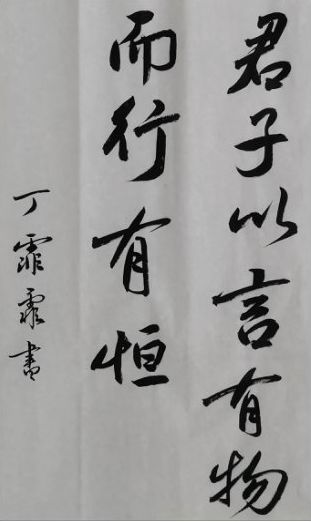 君子以言有物
而行有恒
丁霏霏書